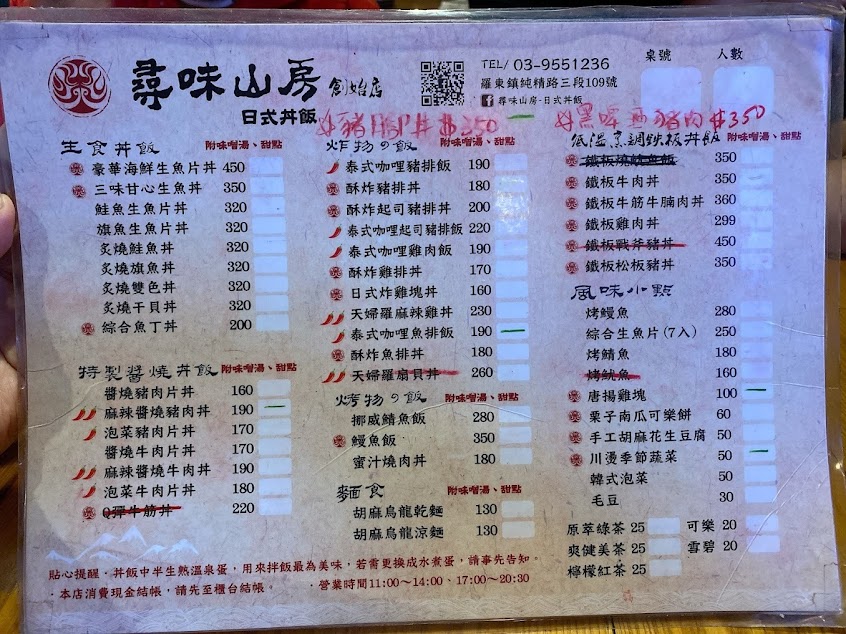 尋味山房 創始店
日式丼飯
TEL/ 03-9551236
羅東鎮純精路三段109號
尋味山房-日式丼飯
桌號 人數
豬腳丼 $350
黑啤 豬肉 $350
生食丼飯 附味噌湯、甜點
豪華海鮮生魚片丼 450
三味甘心生魚丼 350
鮭魚生魚片丼 320
旗魚生魚片丼 320
炙燒鮭魚丼 320
炙燒旗魚丼 320
炙燒雙色丼 320
炙燒干貝丼 320
綜合魚丁丼 200
特製醬燒丼飯 附味噌湯、甜點
醬燒豬肉片丼 160
麻辣醬燒豬肉丼 190
泡菜豬肉片丼 170
醬燒牛肉片丼 170
麻辣醬燒牛肉丼 190
泡菜牛肉片丼 180
Q彈牛筋丼 220
炸物の飯 附味噌湯、甜點
泰式咖哩豬排飯 190
酥炸豬排丼 180
酥炸起司豬排丼 200
泰式咖哩起司豬排飯 220
泰式咖哩雞肉飯 190
酥炸雞排丼 170
日式炸雞塊丼 160
天婦羅麻辣雞丼 230
泰式咖哩魚排飯 190
酥炸魚排丼 180
天婦羅扇貝丼 260
烤物の飯 附味噌湯、甜點
挪威鯖魚飯 280
鰻魚飯 350
蜜汁燒肉丼 180
麵食 附味噌湯、甜點
胡麻烏龍乾麵 130
胡麻烏龍涼麵 130
低溫烹調鐵板丼飯 附味噌湯、甜點
350
鐵板牛肉丼 350
鐵板牛筋牛腩肉丼 360
鐵板雞肉丼 299
鐵板戰斧豬丼 450
鐵板松板豬丼 350
風味小點
烤鰻魚 280
綜合生魚片(7入) 250
烤鯖魚 180
烤魷魚 160
唐揚雞塊 100
栗子南瓜可樂餅 60
手工胡麻花生豆腐 50
川燙季節蔬菜 50
韓式泡菜 50
毛豆 30
原萃綠茶 25 可樂 20
爽健美茶 25 雪碧 20
檸檬紅茶 25
貼心提醒。丼飯中半生熟溫泉蛋，用來拌飯最為美味，若需更換成水煮蛋，請事先告知。
·本店消費現金結帳，請先至櫃台結帳。 ·營業時間11:00～14:00、17:00～20:30